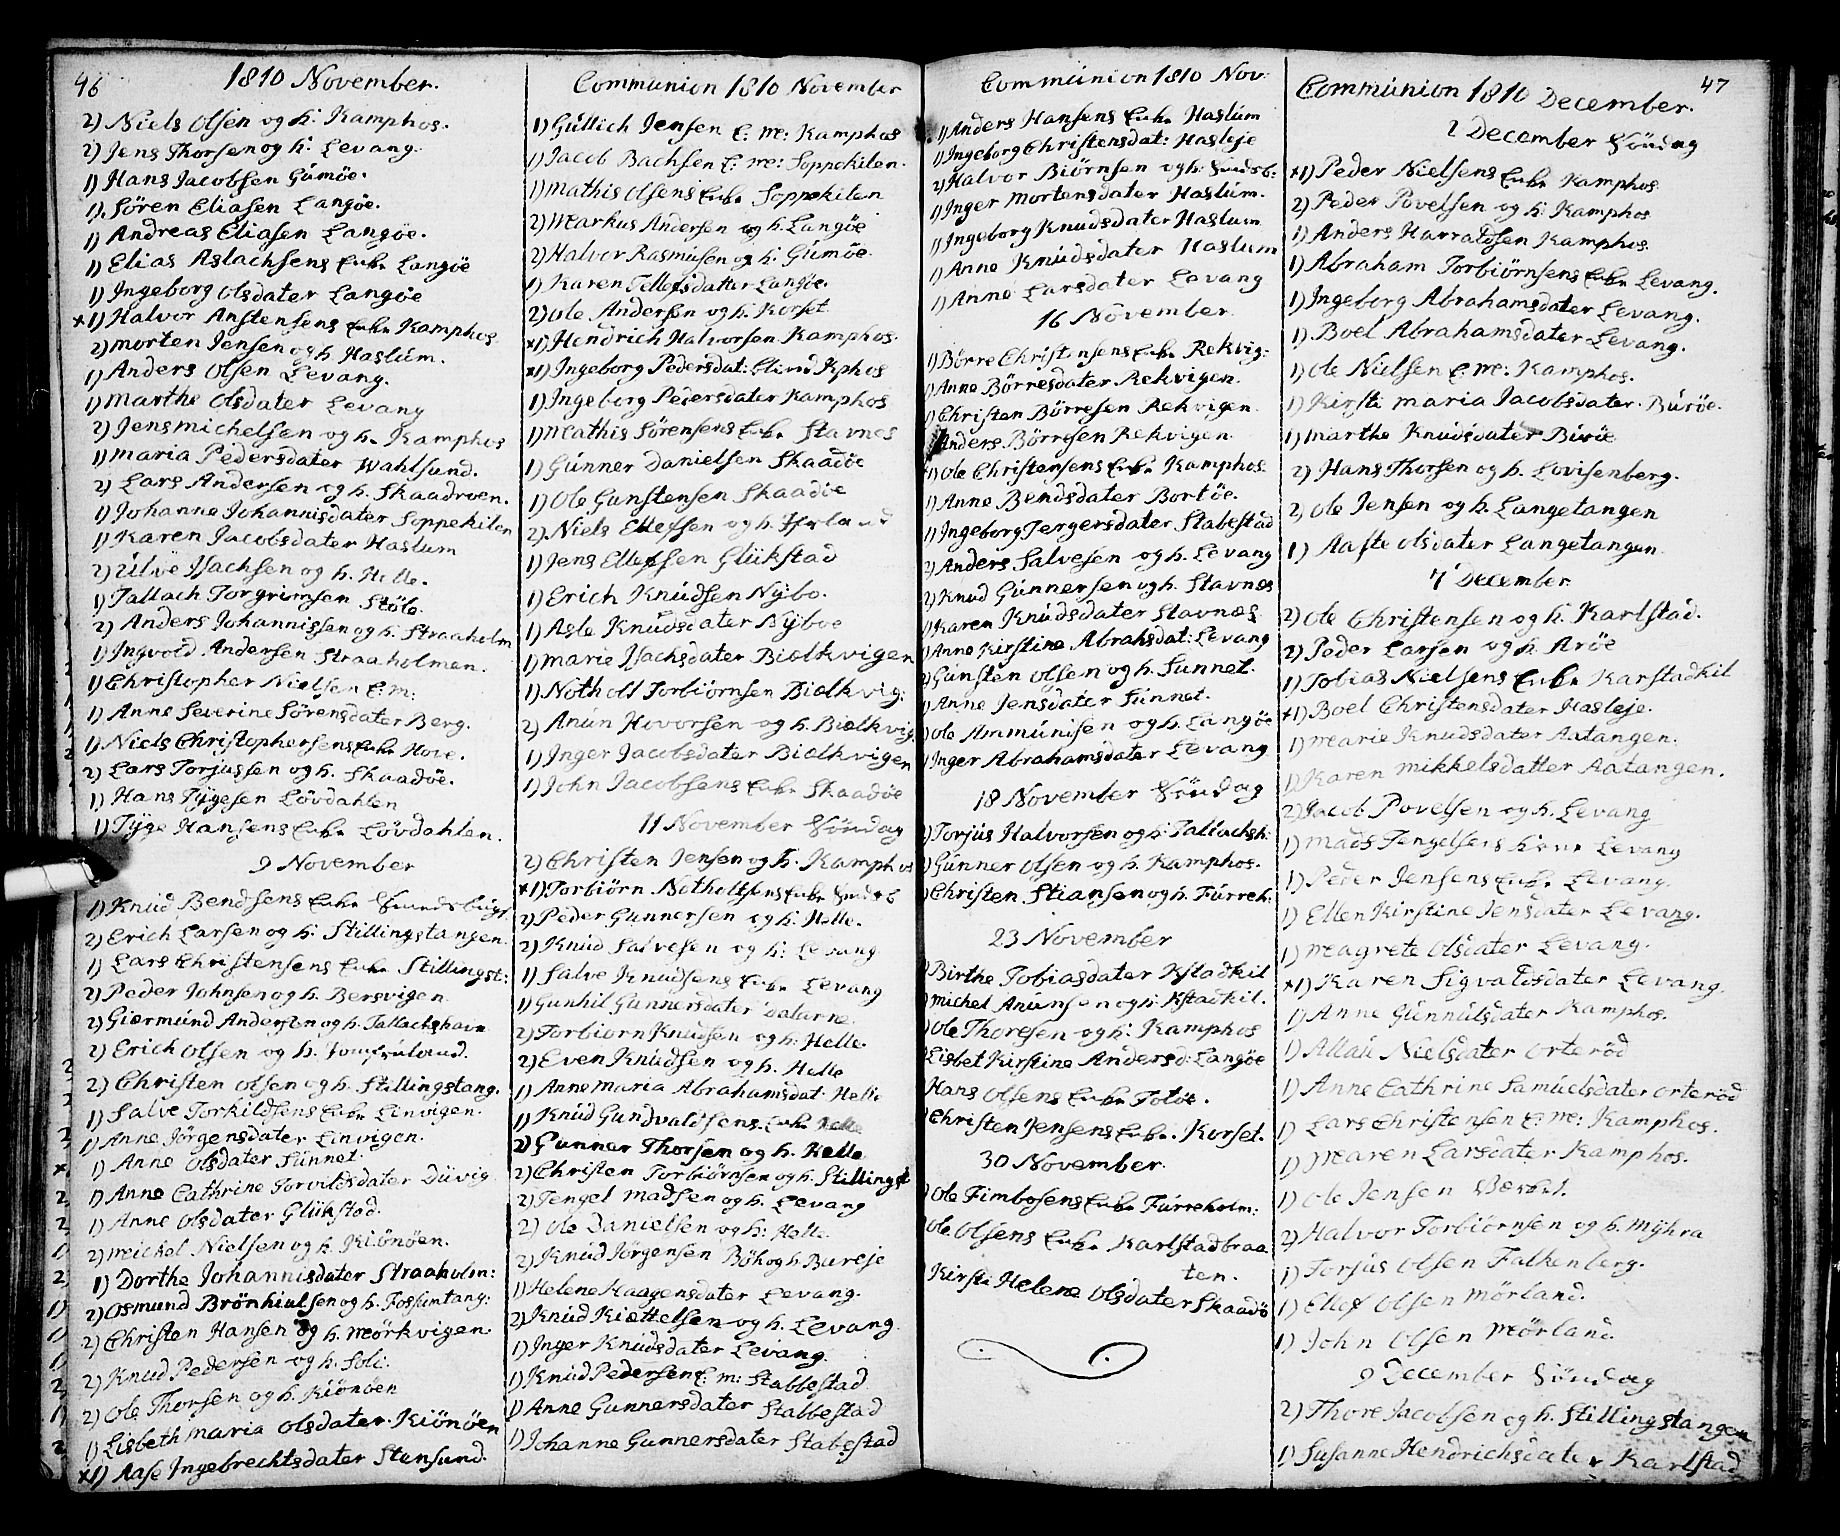 46
1810 November.
2) Niels Olsen og h: Kamphos.
2) Jens Thorsen og h: Levang.
1) Hans Jacobsen Gumöe.
1). Sören Eliasen Langöe.
1) Andreas Eliasen Langöe.
1) Elias Aslachsens Enke Langöe
1) Ingeborg Olsdater Langöe
x1) Halvor Anstensens Enke Kamphos
2) morten Jensen og h Haslum.
1) Anders Olsen Levang.
1) marthe Olsdater Levang
2) Jens michelsen og h. Kamphos
1) maria Pedersdater Wahlsund.
2) Lars Andersen og h. Skaadroen.
1) Johanne Johannisdater Soppekilen
1) Karen Jacobsdater Haslum
2) Ulve Isachsen og h. Helle.
1) Tallach Torgrimsen Stöle.
2) Anders Johannissen og h. Straaholm
1) Ingvold Andersen Straaholmen.
1) Christopher Nielsen E: m:
1) Anne Severine Sörensdater Berg.
1) Niels Christophersens Enke Hove.
2) Lars Torjussen og h. Skaadöe.
1) Hans Tygesen Lövdahlen
1) Tyge Hansens Enke Lövdahlen.
9 November
1) Knud Bendsens Enke
2) Erich Larsen og h: Stillingstangen.
1) Lars Christensens Enke Stillingst:
2) Peder Johnsen og h. Bersvigen
2) Giermund Andersen og h. Tallachshavn
2) Erich Olsen og h. Jomfruland.
2) Christen Olsen og h. Stillingstang.
1) Salve Torkildsens Enke Linvigen.
1) Anne Jörgensdater Linvigen.
x 1) Anne Olsdater Sünnet
1) Anne Cathrine Torvildsdater Düvig
1) Anne Olsdater Glükstad.
2) michel Nielsen og h. Kiönöen.
1) Dorthe Johannisdater Straaholm:
2) Osmund Brönhiulsen og h. Fossumtang:
2) Christen Hansen og h. Mörkvigen.
2) Knud Pedersen og h. Soli.
2) Ole Thorsen og h. Kiönöen
1) Lisbeth maria Olsdater Kiönöen
x1) Aase Ingebrechtsdater Stensund.
Communion 1810 November
1) Gullich Jensen E: m: Kamphos
1) Jacob Bachsen E: m: Soppekilen.
1) mathis Olsens Enke Soppekilen
2) Markus Andersen og h. Langöe
2) Halvor Rasmusen og h: Gumöe.
1) Karen Tellefsdatter Langöe.
2) Ole Andersen og h. Korset
x1) Hendrich Halvorsen Kamphos.
x1) Ingeborg Pedersdat: Kphos
1) Ingeborg Pedersdater Kamphos
1) Mathis Sörensens Enke Stavnes
1) Gunner Danielsen Skaadöe
1) Ole Gunstensen Skaadöe
2). Niels Ellefsen og h.
1) Jens Ellefsen Glükstad
1) Erich Knudsen Nybo.
1) Asle Knudsdater Nyboe
1) marie Isachsdater Bielkvigen
1) Notholt Torbiörnsen Bielkvig:
2) Anun Hovorsen og h. Bielkvig.
1) Inger Jacobsdater Bielkvigen
1) John Jacobsens Enke Skaadöe
11 November Söndag
2) Christen Jensen og h. Kamphos
x1) Torbiörn Notholtsens Enke
2) Peder Gunnersen og h: Helle.
2) Knud Salvesen og h: Levang
1) Salve Knudsens Enke Levang
1) Gunhil Gunnersdater Dalarne.
2) Torbiorn Knudsen og h: Helle.
2) Even Knudsen og h. Helle
1) Anne maria Abrahamsdat. Helle
1) Knud Gundvaldsens Enke Helle
2) Gunner Thorsen og h. Helle
2) Christen Torbiörnsen og h. Stillingst
2) Tengel madsen og h. Levang
2) Ole Danielsen og h: Helle.
2) Knud Jörgensen Böh og h. Bureje
1) Helene Haagensdater Levang.
2) Knud Kiettelsen og h. Levang.
1) Inger Knudsdater Levang.
1) Knud Pedersen E: m: Stabbestad
1) Anne Gunnersdater Stabbestad
1) Johanne Gunnersdater Stabestad
Communion 1810 Nov:
1) Anders Hansens Enke Haslum
1) Ingeborg Christensdat: Hasleje
2) Halvor Biörnsen og h.
1) Inger Mortensdater Haslum.
1) Ingeborg Knudsdater Haslum
1) Anne Knudsdater Haslum
1) Anne Larsdater Levang
16 November
1) Börre Christensens Enke Rekvig:
1) Anne Börresdater Rekvigen.
1) Christen Börresen Rekvigen
Anders Börresen Rekvigen
1) Ole Christensens Enke Kamphos
1) Anne Bendsdater Bortöe.
1) Ingeborg Jergersdater Stabestad
2) Anders Salvesen og h. Levang
2) Knud Gunnersen og h. Stavnes
1) Karen Knudsdater Stavnes
1) Anne Kirstine Abrahsdat: Levang
Gunsten Olsen og h. Sunnet.
1) Anne Jensdater Sunnet.
Ole Ammunisen og h. Langöe
1) Inger Abrahamsdater Levang
18 November Söndag
2) Torjus Halvorsen og h: Tallachsh:
Gunner Olsen og h. Kamphos.
Christen Stiansen og h. Furreh:
23 November
Birthe Tobiasdater Kstadkil
michel Anunsen og h: Kstadkil.
Ole Thoresen og h: Kamphos
Lisbet Kirstine Andersd: Langöe
Hans Olsens Enke Tolöe.
Christen Jensens Enke. Korset.
30 November.
Ole Fimbosens Enke Furreholm:
Ole Olsens Enke Karlstadbraa
ten.
Kirsti Helene Olsdater Skaadö
47
Communion 1810 December.
2 December Söndag
x1) Peder Nielsens Enke Kamphos
2) Peder Povelsen og h: Kamphos
1) Anders Harraldsen Kamphos.
1) Abraham Torbiörnsens Enke Levang.
1) Ingeborg Abrahamsdater Levang.
1) Boel Abrahamsdater Levang.
1) Ole Nielsen E: m: Kamphos.
1) Kirsti maria Jacobsdater. Buröe.
1) marthe Knudsdater Buröe
2) Hans Thorsen og h. Lovisenberg.
2) Ole Jensen og h. Langetangen
1) Aaste Olsdater Langetangen
7 December
2) Ole Christensen og h. Karlstad.
2) Peder Larsen og h. Aröe
1) Tobias Nielsens Enke Karstadkil
x1) Boel Christensdater Hasleje.
1) Marie Knudsdater Aatangen.
1) Karen Mikkelsdatter Aatangen.
2) Jacob Povelsen og h. Levang
1) Mads Tengelsens Kone Levang
1) Peder Jensens Enke Levang.
1) Ellen Kirstine Jensdater Levang.
1) Magrete Olsdater Levang.
x1) Karen Sigvaldsdater Levang.
1) Anne Gunnulsdater Kamphos.
1) Allau Nielsdater Orteröd
1) Anne Cathrine Samuelsdater Orteröd
1) Lars Christensen E: m: Kamphos.
1) Maren Larsdater Kamphos.
1) Ole Jensen
2) Halvor Torbiörnsen og h. Myhra
1) Torjus Olsen Falkenberg.
1) Ellef Olsen Mörland.
1) John Olsen Mörland.
9 December Söndag
2) Thore Jacobsen og h. Stillingstangen
1) Susanne Hendrichsdater Karlstad